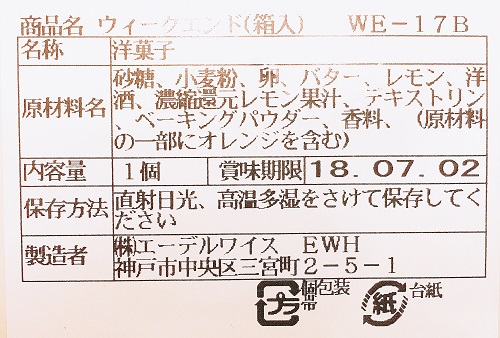 商品名 ウィークエンド(箱入) WE-17B
名称 洋菓子
原材料名 砂糖、小麦粉、卵、バター、レモン、洋
酒、濃縮還元レモン果汁、テキストリン
、ベーキングパウダー、香料、(原材料
の一部にオレンジを含む)
内容量 1個 賞味期限 18.07.02
保存方法 直射日光、高温多湿をさけて保存してく
ださい
製造者 ㈱エーデルワイス EWH
神戸市中央区三宮町2-5-1
プラ 個包装
帯
紙 台紙